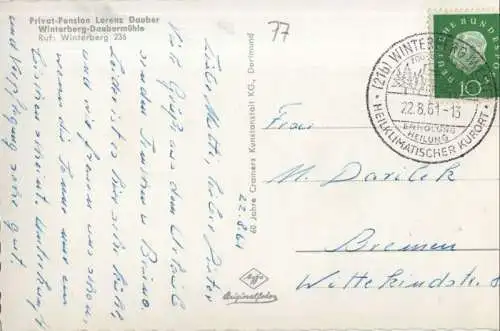 Privat-Pension Lorenz Dauber
Winterberg-Daubermühle
Ruf: Winterberg 236
77
22.8.61
Liebe Mutti, lieber Günter
Viele Grüße aus dem Urlaub
senden
Landschaft hier sehr
und wir freuen uns schon,
wenn die Sonne
bischen scheint. Unterkunft
und Verpflegung sehr gut.
60 Jahre Cramers Kunstanstalt KG., Dortmund
Agfa
Originalfoto
DEUTSCHE BUNDESPOST
10
(21b) WINTERBERG
22.8.61-13
ERHOLUNG
HEILUNG
HEILKLIMATISCHER KURORT
Frau
M. Darilek
Bremen
Wittekindstr. 8